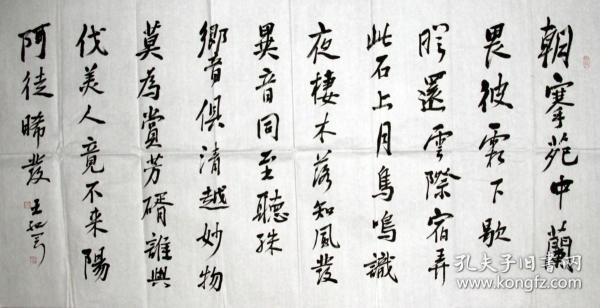 朝搴苑中蘭
畏彼霜下歇
暝還雲際宿弄
此石上月鳥鳴識
夜棲木落知風發
異音同至聽殊
響俱清越妙物
莫為賞芳醑誰與
伐美人竟不來陽
阿徒晞發 王
孔夫子旧书网
www.kongfz.com